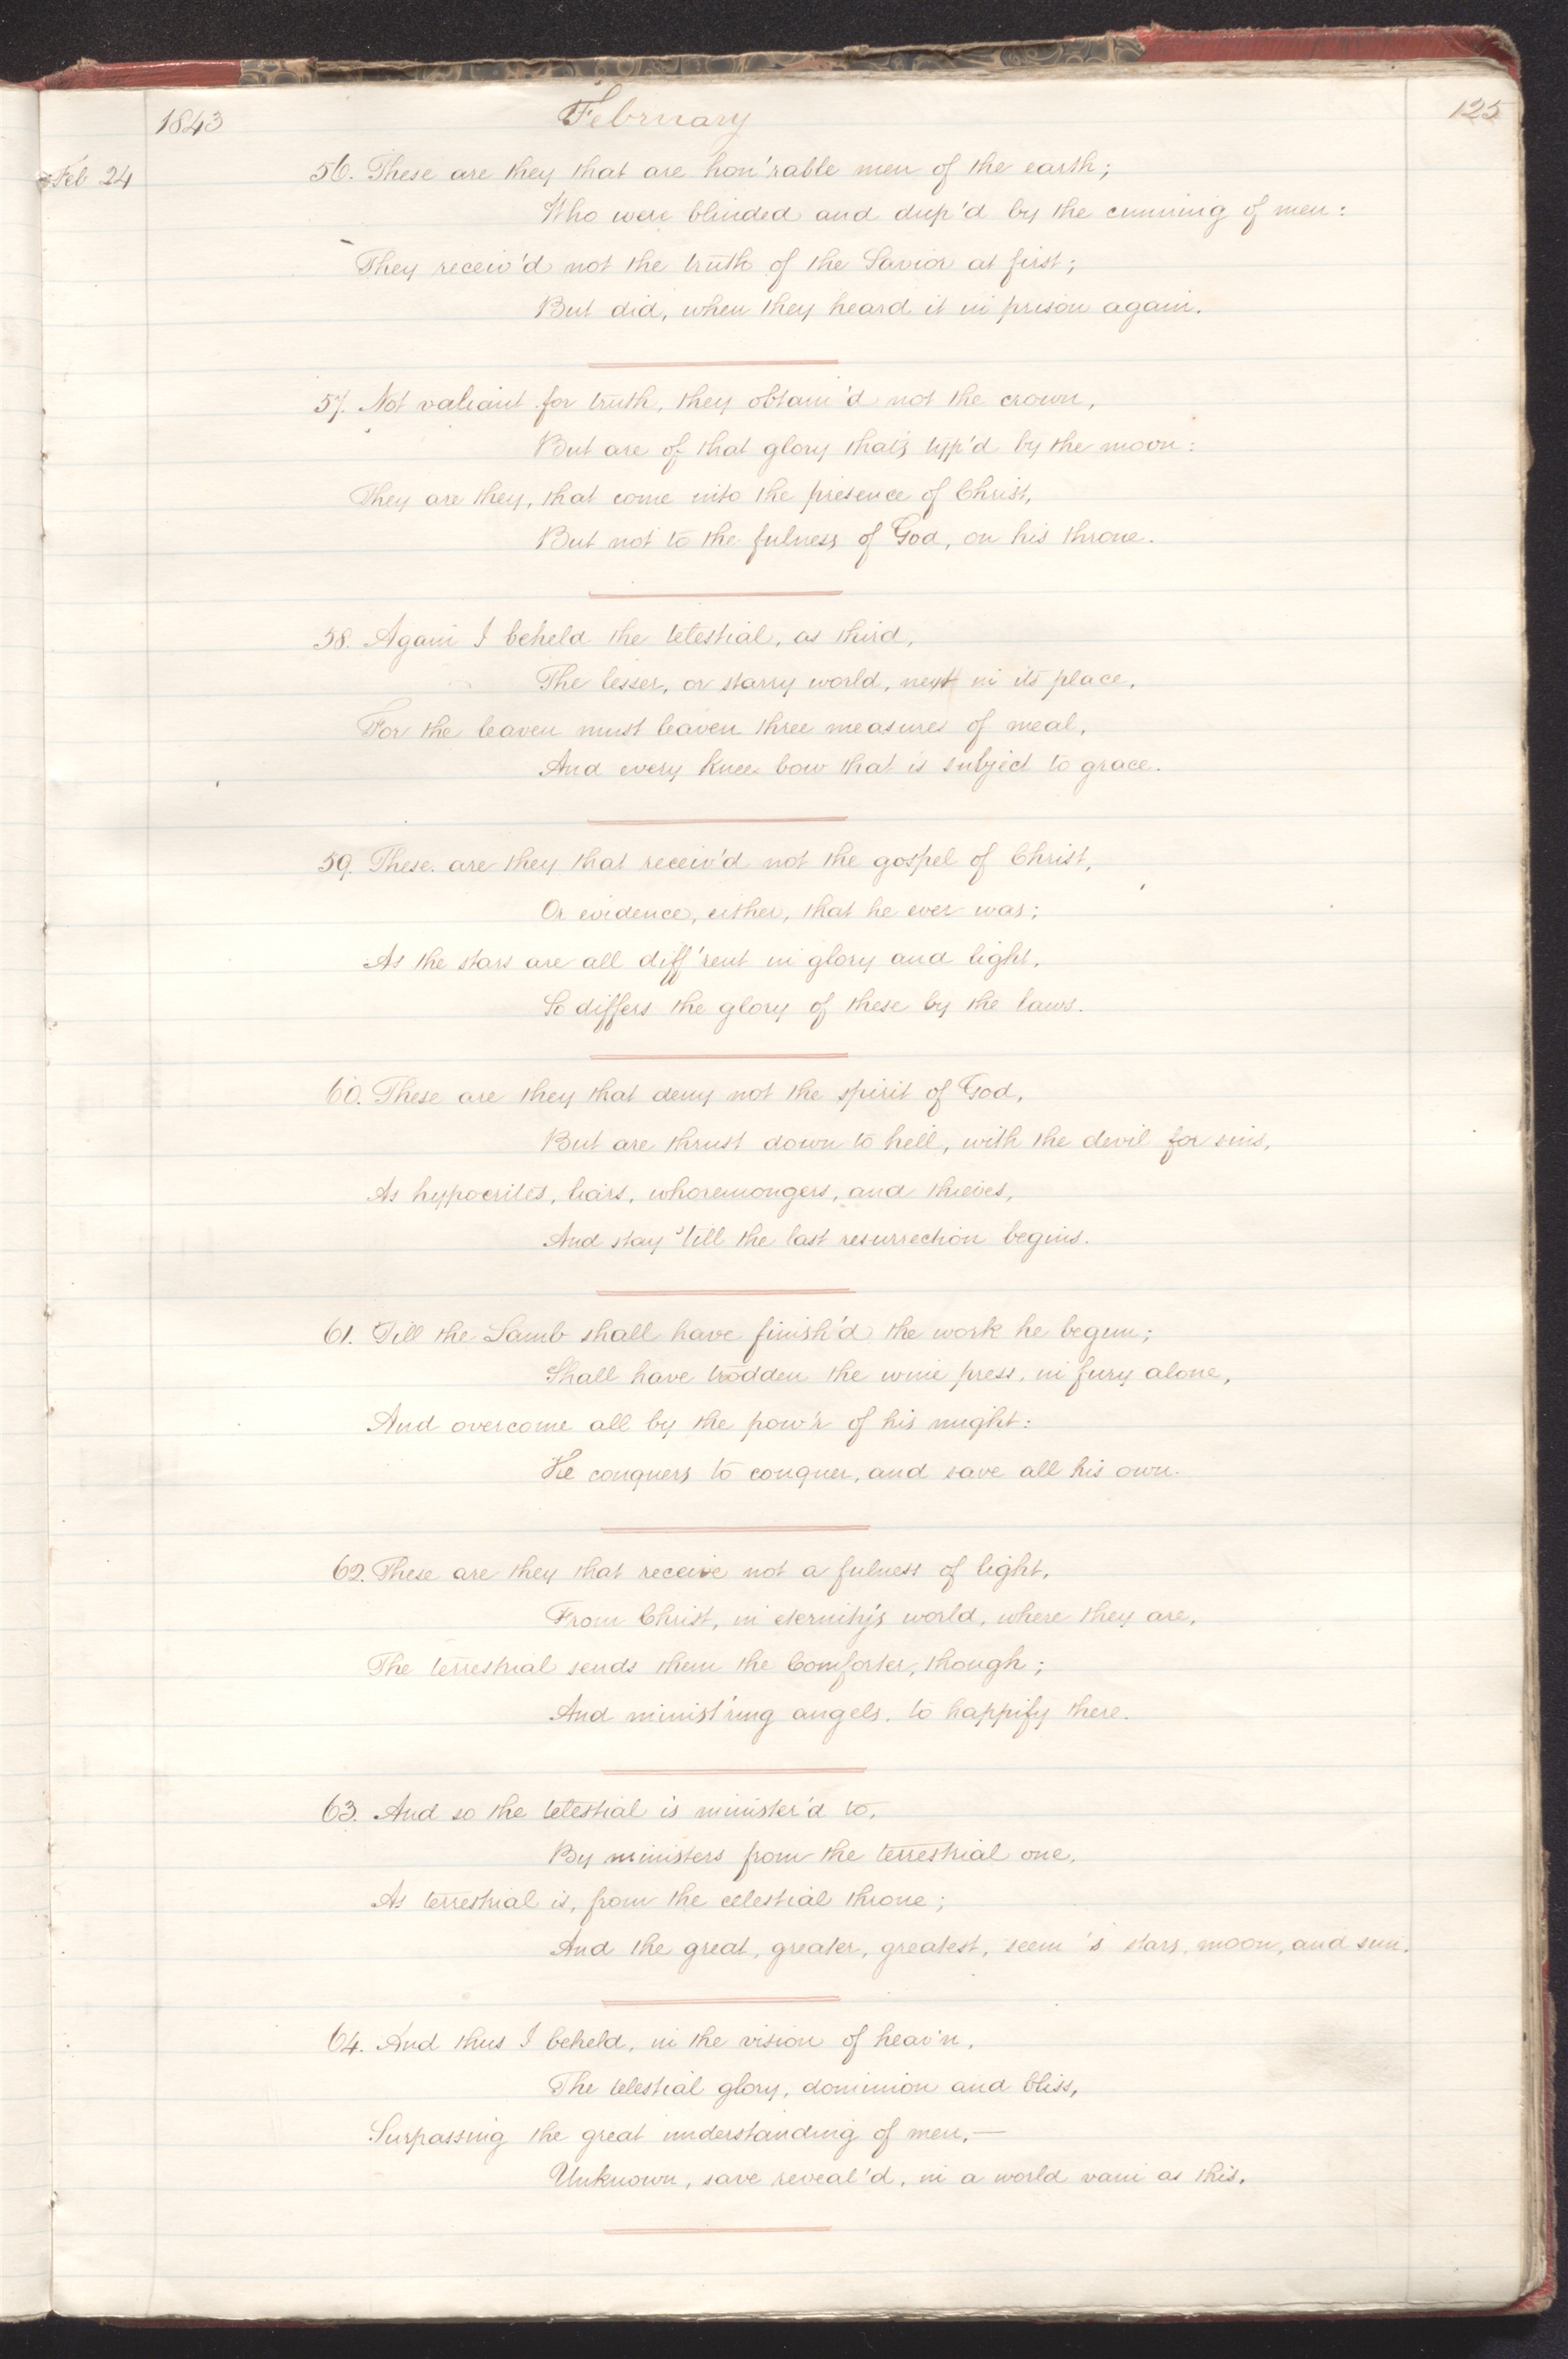 1843 February 125
Feb 24 56. These are they that are hon'rable men of the earth;
Who were blinded and dup'd by the cunning of men:
They receiv'd not the truth of the Savior at first;
But did, when they heard it in prison again.
57. Not valiant for truth, they obtain'd not the crown,
But are of that glory that's typ'd by the moon:
They are they, that come into the presence of Christ,
But not to the fulness of God, on his throne.
58. Again I beheld the telestial, as third,
The lesser, or starry world, next in its place,
For the leaven must leaven three measures of meal,
And every knee bow that is subject to grace.
59. These are they that receiv'd not the gospel of Christ,
Or evidence, either, that he ever was;
As the stars are all diff'rent in glory and light,
So differs the glory of these by the laws.
60. These are they that deny not the spirit of God,
But are thrust down to hell, with the devil for sins,
As hypocrites, liars, whoremongers, and thieves,
And stay 'till the last resurrection begins.
61. Till the Lamb shall have finish'd the work he begun;
Shall have trodden the wine press, in fury alone,
And overcome all by the pow'r of his might:
He conquers to conquer, and save all his own.
62. These are they that receive not a fulness of light,
From Christ, in eternity's world, where they are,
The terrestrial sends them the Comforter, though;
And minist'ring angels, to happify there.
63. And so the telestial is minister'd to,
By ministers from the terrestrial one,
As terrestrial is, from the celestial throne;
And the great, greater, greatest, seem 's stars, moon, and sun.
64. And thus I beheld, in the vision of heav'n,
The telestial glory, dominion and bliss,
Surpassing the great understanding of men,—
Unknown, save reveal'd, in a world vain as this.